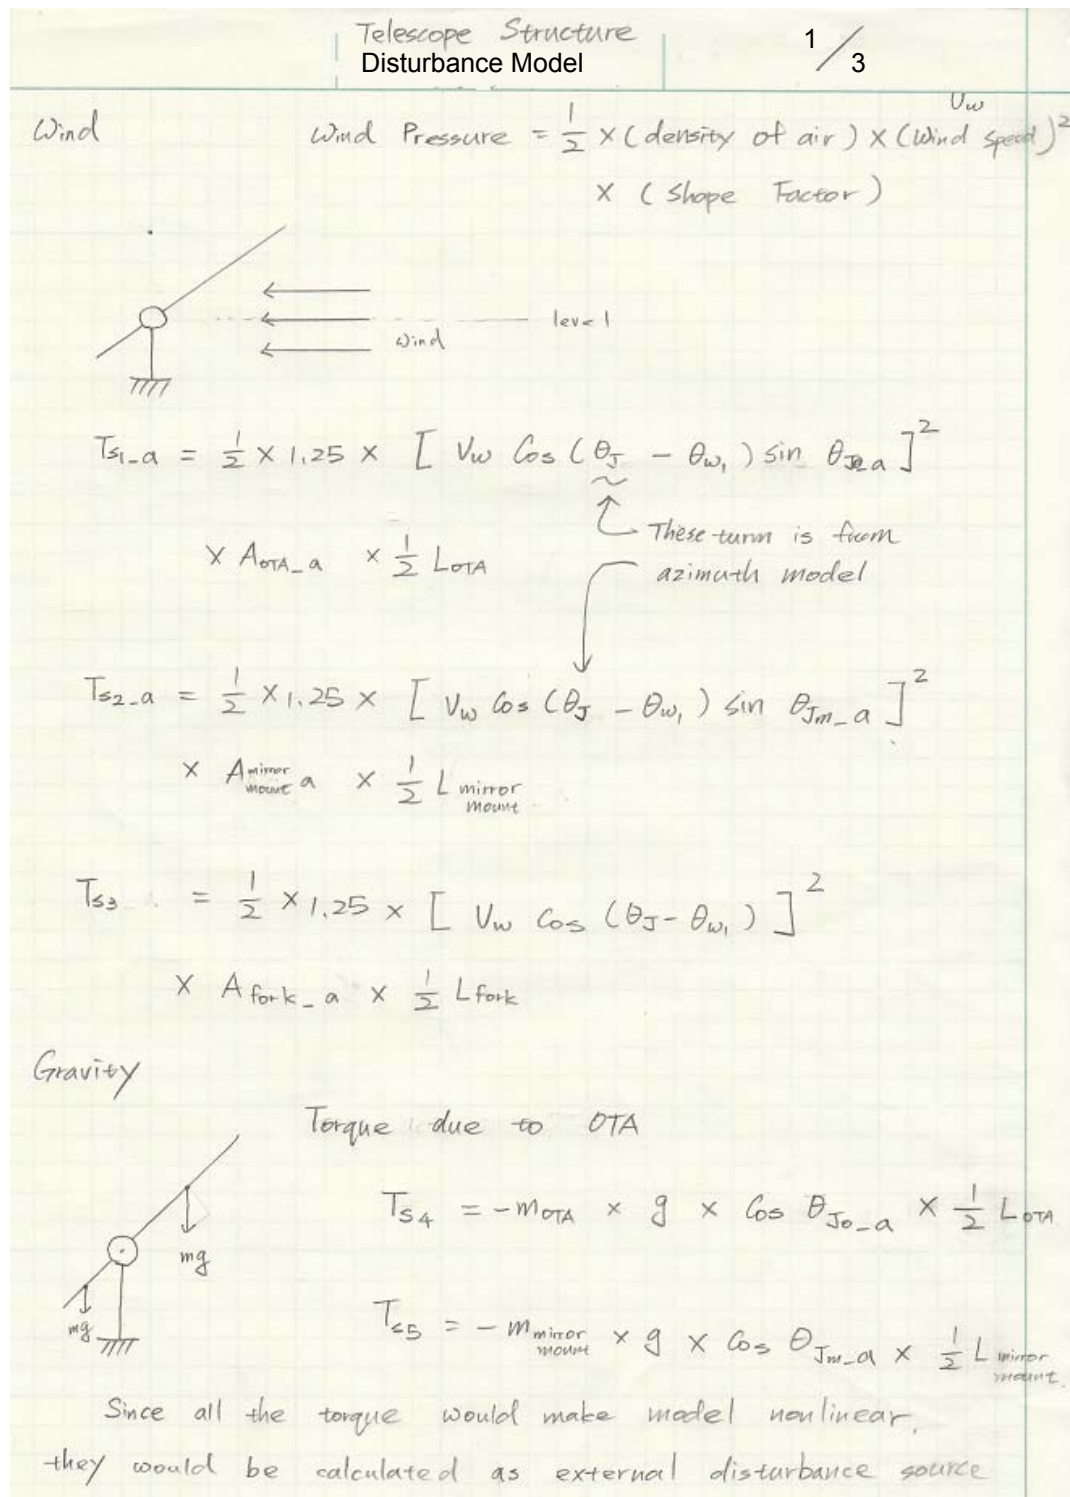 Telescope Structure
Disturbance Model
1/3
Wind
Wind Pressure = 1/2 × (density of air) × (Wind speed)² Vw
× (Shape Factor)
level
wind
Ts1_a = 1/2 × 1.25 × [ Vw Cos (θJ - θw1) sin θJo_a ]²
These turm is from
azimuth model
× AOTA_a × 1/2 LOTA
Ts2_a = 1/2 × 1.25 × [ Vw Cos (θJ - θw1) sin θJm_a ]²
× A mirror mount a × 1/2 L mirror mount
Ts3 = 1/2 × 1.25 × [ Vw Cos (θJ - θw1) ]²
× A fork_a × 1/2 L fork
Gravity
Torque due to OTA
mg
mg
Ts4 = - mOTA × g × Cos θJo_a × 1/2 LOTA
Ts5 = - m mirror mount × g × Cos θJm_a × 1/2 L mirror mount.
Since all the torque would make model nonlinear,
they would be calculated as external disturbance source